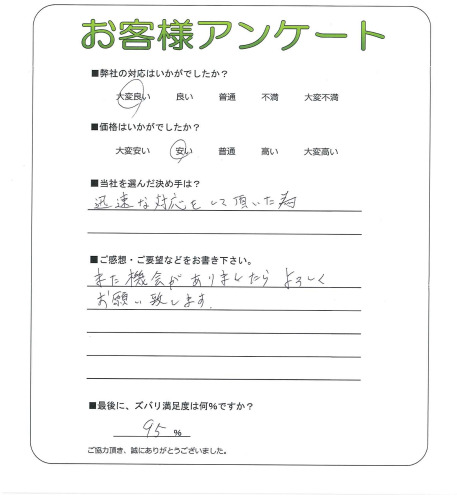 お客様アンケート
■弊社の対応はいかがでしたか？
大変良い 良い 普通 不満 大変不満
■価格はいかがでしたか？
大変安い 安い 普通 高い 大変高い
■当社を選んだ決め手は？
迅速な対応をして頂いた為
■ご感想・ご要望などをお書き下さい。
また機会がありましたらよろしく
お願い致します.
■最後に、ズバリ満足度は何%ですか？
95 %
ご協力頂き、誠にありがとうございました。